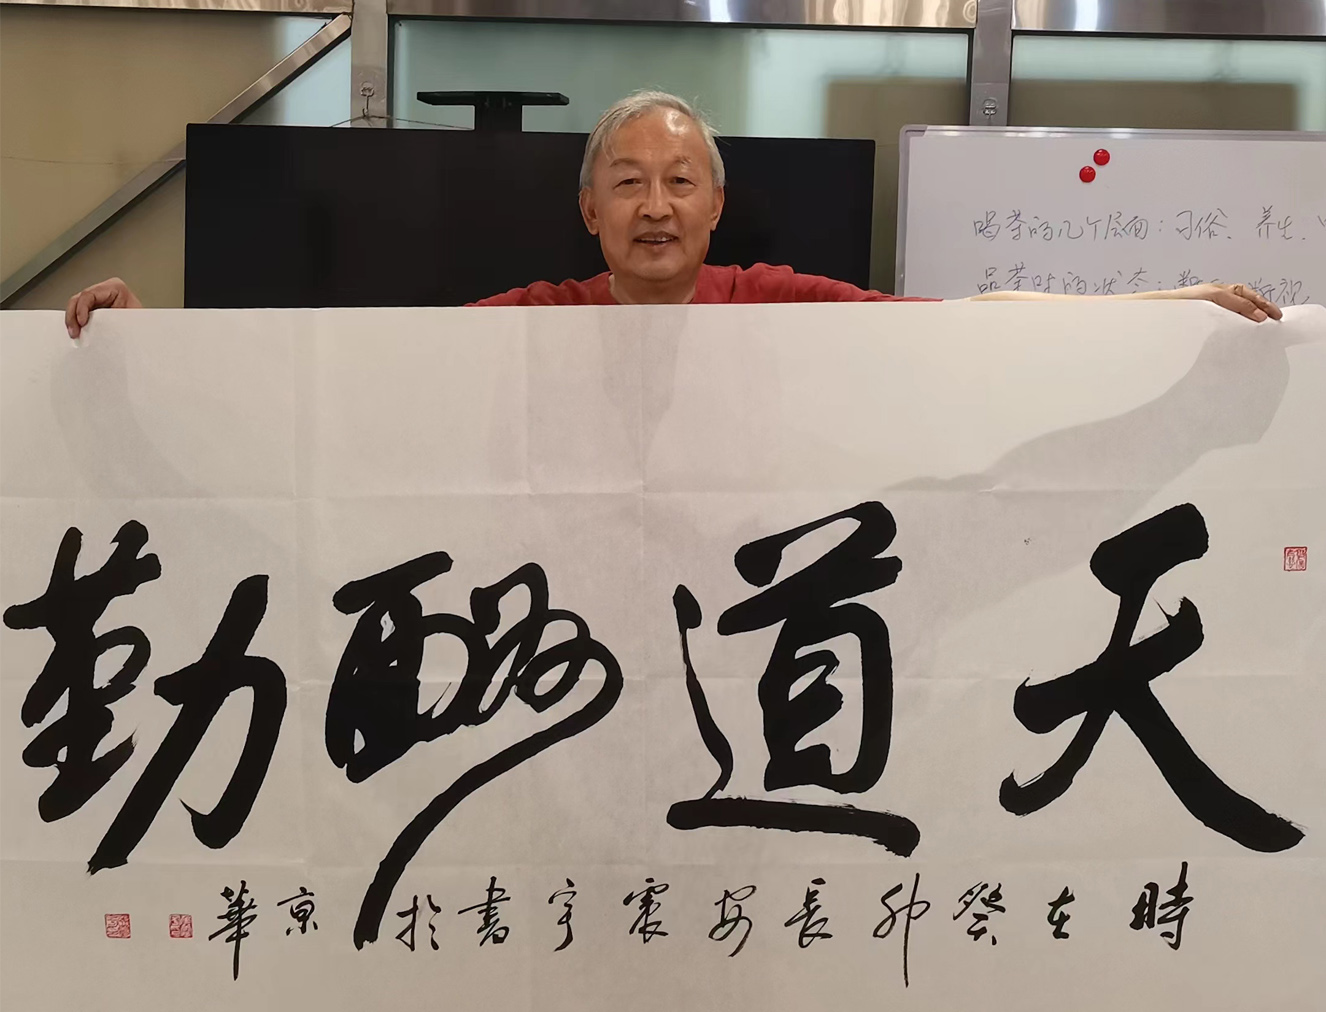 天道酬勤
時在癸卯長安震宇書於京華
喝茶的几个层面：习俗、养生、
品茶时的状态：